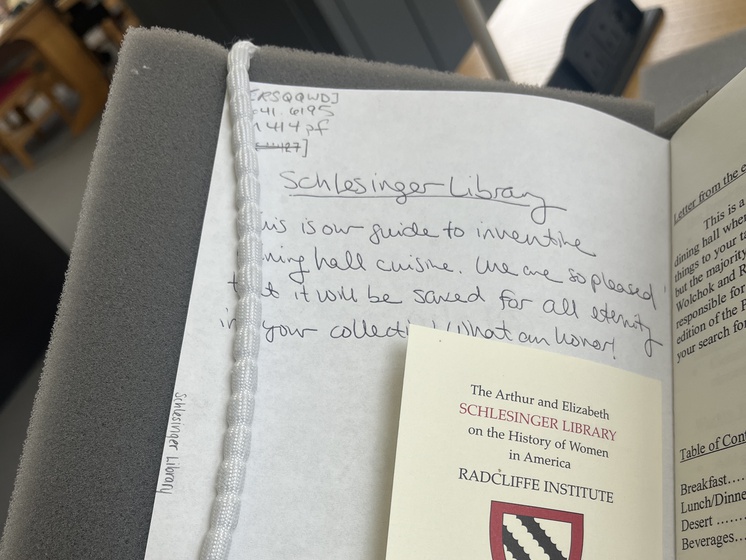 [RSQQWD]
641.6195
414pf
Schlesinger Library
This is our guide to inventive
dining hall cuisine. We are so pleased
that it will be saved for all eternity
in your collection! What an honor!
Schlesinger Library
The Arthur and Elizabeth
SCHLESINGER LIBRARY
on the History of Women
in America
RADCLIFFE INSTITUTE
Letter from the e
This is a
dining hall whe
things to your ta
but the majority
Wolchok and R
responsible for
edition of the
your search for
Table of Cont
Breakfast....
Lunch/Dinne
Desert .......
Beverages...